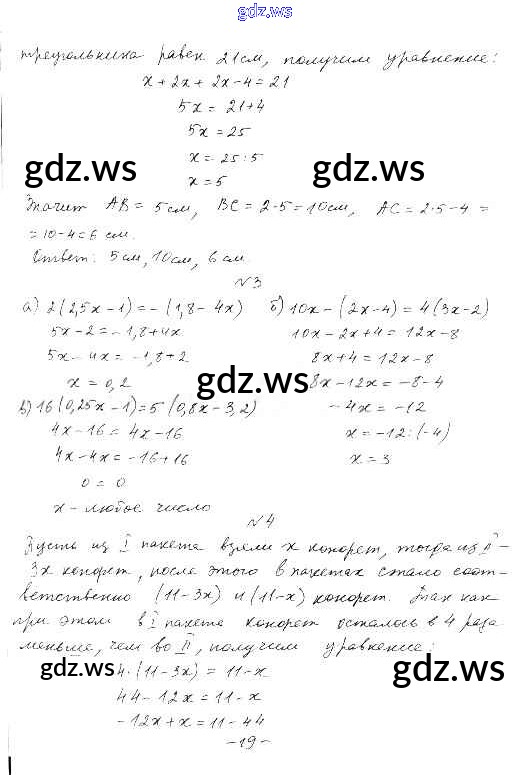 gdz.ws
треугольника равен 21см, получим уравнение:
x + 2x + 2x - 4 = 21
5x = 21 + 4
5x = 25
x = 25 : 5
gdz.ws gdz.ws
x = 5
Значит AB = 5см, BC = 2·5 = 10см, AC = 2·5 - 4 =
= 10 - 4 = 6 см.
Ответ: 5см, 10см, 6 см
№3
а) 2(2,5x - 1) = -(1,8 - 4x)
5x - 2 = -1,8 + 4x
5x - 4x = -1,8 + 2
x = 0,2
б) 10x - (2x - 4) = 4(3x - 2)
10x - 2x + 4 = 12x - 8
8x + 4 = 12x - 8
8x - 12x = -8 - 4
-4x = -12
x = -12 : (-4)
x = 3
gdz.ws gdz.ws
в) 16(0,25x - 1) = 5(0,8x - 3,2)
4x - 16 = 4x - 16
4x - 4x = -16 + 16
0 = 0
x - любое число
№4
Пусть из I пакета взяли x конфет, тогда из II -
3x конфет, после этого в пакетах стало соот-
ветственно (11 - 3x) и (11 - x) конфет. Так как
при этом в I пакета конфет осталось в 4 раза
меньше, чем во II, получим уравнение:
gdz.ws gdz.ws
4·(11 - 3x) = 11 - x
44 - 12x = 11 - x
-12x + x = 11 - 44
-19-